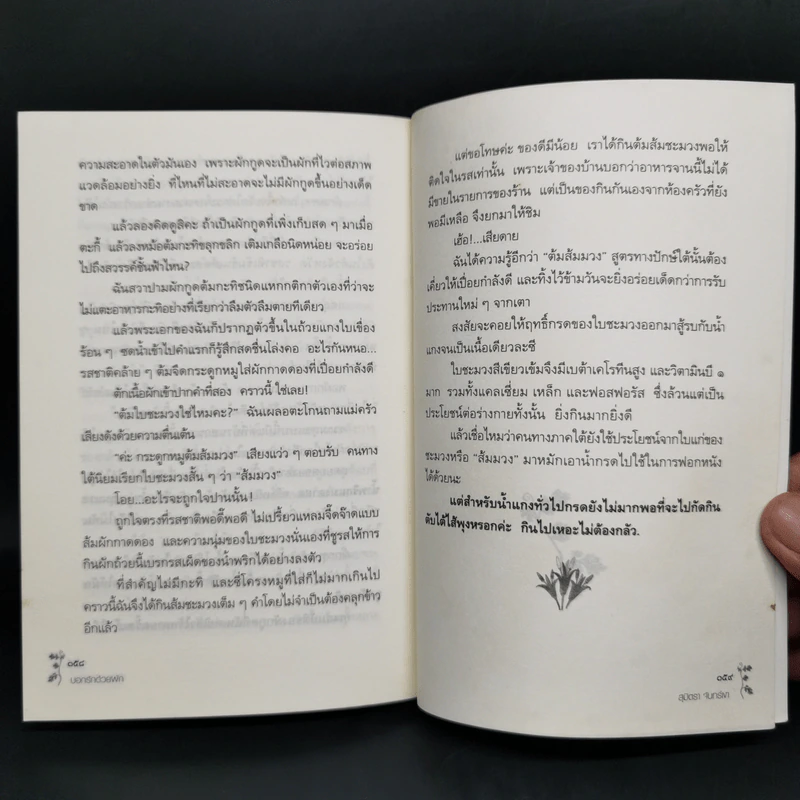 ความสะอาดในตัวมันเอง เพราะผักกูดจะเป็นผักที่ไวต่อสภาพ
แวดล้อมอย่างยิ่ง ที่ไหนที่ไม่สะอาดจะไม่มีผักกูดขึ้นอย่างเด็ด
ขาด
แล้วลองคิดดูสิคะ ถ้าเป็นผักกูดที่เพิ่งเก็บสด ๆ มาเมื่อ
ตะกี้ แล้วลงหม้อต้มกะทิขลุกขลิก เติมเกลือนิดหน่อย จะอร่อย
ไปถึงสวรรค์ชั้นฟ้าไหน?
ฉันสวาปามผักกูดต้มกะทิชนิดแหกกติกาตัวเองที่ว่าจะ
ไม่แตะอาหารกะทิอย่างที่เรียกว่าลืมตัวลืมตายทีเดียว
แล้วพระเอกของฉันก็ปรากฏตัวขึ้นในถ้วยแกงใบเขื่อง
ร้อน ๆ ซดน้ำเข้าไปคำแรกก็รู้สึกสดชื่นโล่งคอ อะไรกันหนอ...
รสชาติคล้าย ๆ ต้มจืดกระดูกหมูใส่ผักกาดดองที่เปื่อยกำลังดี
ตักเนื้อผักเข้าปากคำที่สอง คราวนี้ ใช่เลย!
"ต้มใบชะมวงใช่ไหมคะ?" ฉันเผลอตะโกนถามแม่ครัว
เสียงดังด้วยความตื่นเต้น
"ค่ะ กระดูกหมูต้มส้มมวง" เสียงแว่ว ๆ ตอบรับ คนทาง
ใต้นิยมเรียกใบชะมวงสั้น ๆ ว่า "ส้มมวง"
โอย...อะไรจะถูกใจปานนั้น!
ถูกใจตรงที่รสชาติพอดี๊พอดี ไม่เปรี้ยวแหลมจี๊ดจ๊าดแบบ
ส้มผักกาดดอง และความนุ่มของใบชะมวงนั่นเองที่ชูรสให้การ
กินผักถ้วยนี้เบรกรสเผ็ดของน้ำพริกได้อย่างลงตัว
ที่สำคัญไม่มีกะทิ และซี่โครงหมูที่ใส่ก็ไม่มากเกินไป
คราวนี้ฉันจึงได้กินส้มชะมวงเต็ม ๆ คำโดยไม่จำเป็นต้องคลุกข้าว
อีกแล้ว
๐๕๘
บอกรักด้วยผัก
แต่ขอโทษค่ะ ของดีมีน้อย เราได้กินต้มส้มชะมวงพอให้
ติดใจในรสเท่านั้น เพราะเจ้าของบ้านบอกว่าอาหารจานนี้ไม่ได้
มีขายในรายการของร้าน แต่เป็นของกินกันเองจากท้องครัวที่ยัง
พอมีเหลือ จึงยกมาให้ชิม
เฮ้อ!...เสียดาย
ฉันได้ความรู้อีกว่า "ต้มส้มมวง" สูตรทางปักษ์ใต้นั้นต้อง
เคี่ยวให้เปื่อยกำลังดี และทิ้งไว้ข้ามวันจะยิ่งอร่อยเด็ดกว่าการรับ
ประทานใหม่ ๆ จากเตา
สงสัยจะคอยให้ฤทธิ์กรดของใบชะมวงออกมาสู้รบกับน้ำ
แกงจนเป็นเนื้อเดียวละซี
ใบชะมวงสีเขียวเข้มจึงมีเบต้าแคโรทีนสูง และวิตามินบี ๑
มาก รวมทั้งแคลเซี่ยม เหล็ก และฟอสฟอรัส ซึ่งล้วนแต่เป็น
ประโยชน์ต่อร่างกายทั้งนั้น ยิ่งกินมากยิ่งดี
แล้วเชื่อไหมว่าคนทางภาคใต้ยังใช้ประโยชน์จากใบแก่ของ
ชะมวงหรือ "ส้มมวง" มาหมักเอาน้ำกรดไปใช้ในการฟอกหนัง
ได้ด้วยนะ
แต่สำหรับน้ำแกงทั่วไปกรดยังไม่มากพอที่จะไปกัดกิน
ตับไตไส้พุงหรอกค่ะ กินไปเหอะไม่ต้องกลัว.
๐๕๙
สุมิตรา จันทร์เงา